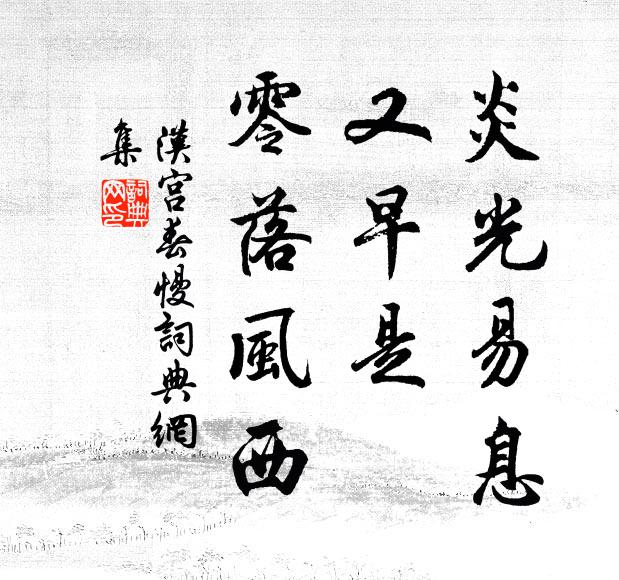 炎光易息
又早是
零落風西
漢宮春慢詞典網
集
詞典
网印